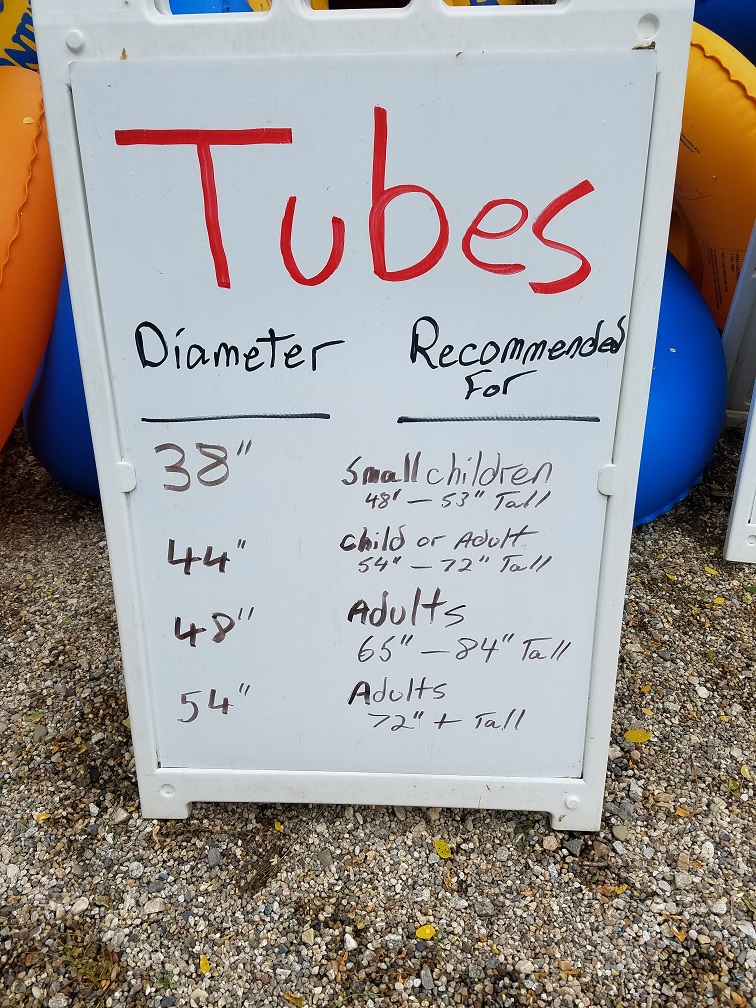 Tubes
Diameter Recommended
For
38" Small children
48' – 53" Tall
44" Child or Adult
54" – 72" Tall
48" Adults
65" – 84" Tall
54" Adults
72" + Tall